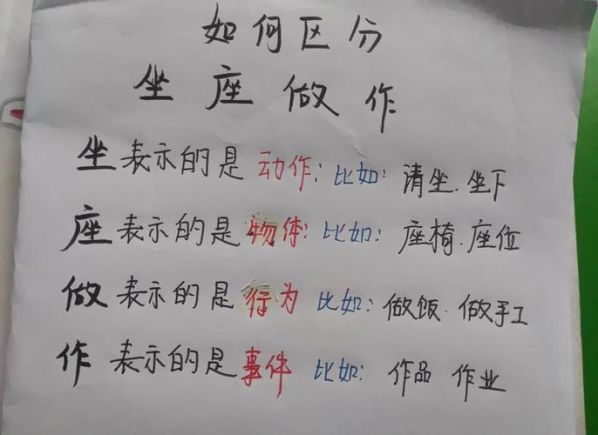 如何区分
坐 座 做 作
坐表示的是动作:比如:请坐.坐下
座表示的是物体:比如:座椅.座位
做表示的是行为 比如:做饭.做手工
作表示的是事件 比如:作品 作业